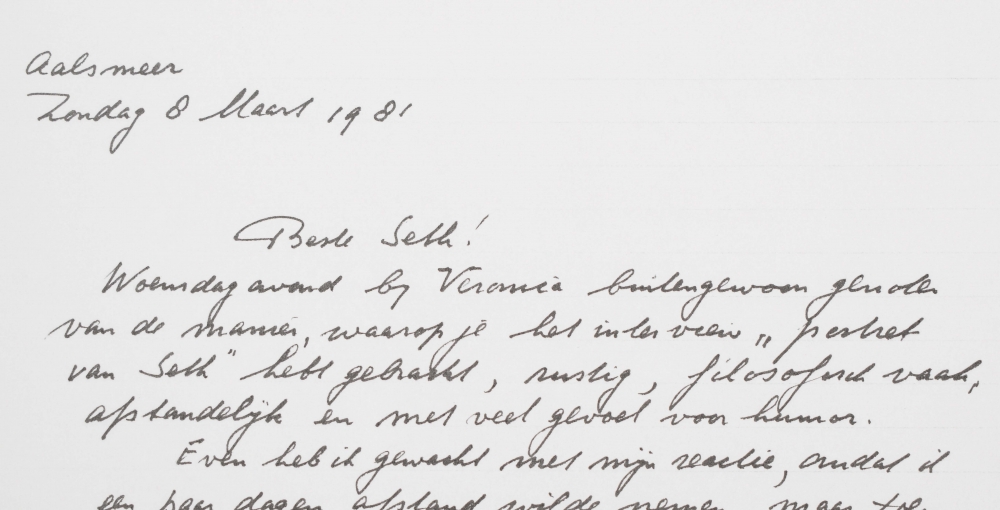 Aalsmeer
Zondag 8 Maart 1981
Beste Seth!
Woensdagavond by Veronica buitengewoon genoten
van de manier, waarop je het interview „portret
van Seth" hebt gebracht, rustig, filosofisch vaak,
afstandelijk en met veel gevoel voor humor.
Even heb ik gewacht met mijn reactie, omdat ik
een paar dagen afstand wilde nemen, maar toe